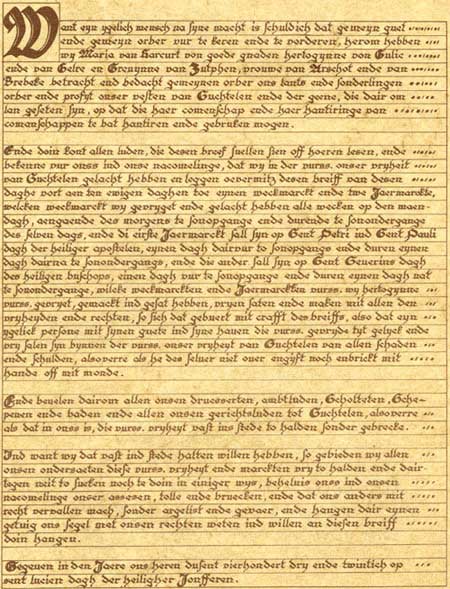 Want eyn ygelich mensch na syne macht is schuldich dat gemeyn guet
ende gemeyn orber vur te keren ende te vorderen, herom hebben
wy Maria van Harcurt von goede gnaden hertoghynne von Gulic
ende van Gelre ende Greuynne van Zutphen, vrouwe van Arschot ende van
Brebeke betracht end bedacht gemeynen orber ons lants ende sonderlingen
orber ende profyt onser vesten van Guchtelen ende der goene, die dair om
lan geseten syn, op dat die haer comenschap ende haer hantiringe van
comanschappen te bat hantiren ende gebruken mogen.
Ende doin kont allen luden, die desen brief suellen sien off hoeren lesen, ende
bekenne vur onss ind onse nacomelinge, dat wy in der vurss. onser vryheit
van Guchtelen gelacht hebben en leggen oevermitz desen breiff van desen
daghe vort aen ten ewigen daghen toe eynen weckmarckt ende twe Jaermarckte,
welcken weckmarckt wy gevryget ende gelacht hebben alle wecken op den maen-
dagh, aengaende des morgens te sonopgange ende durende te sonondergange
des selven dags, ende di eirste Jaermarckt sall syn op Sent Petri ind Sent Pauli
dagh der heiliger apostelen, eynen dagh dairvur to sonopgangs end duren eynen
dagh dairna te sonondergangs, ende die ander sall syn op Sent Seuerins dagh
des heiligen buschops, einen dagh vur te sonopgange ende duren eynen dagh nat
te sonondergange, wilcke weckmarckten ende Jaermarckten vurss. wy hertogynne
vurss. gevryet, gemackt ind gesat hebben, vryen saten ende maken mit allen den
vryheyden ende rechten, so sich dat gebuert mit crafft des breiffs, also dat eyn
ygelick persone mit synen guete ind syne hauen die vurss. gevryde tyt gelyck ende
vry salen syn bynnen der vurss. onser vryheyt van Guchtelen van allen schaden
ende schulden, alsoverre als he des selver niet over engyft noch enbrickt mit
hande off mit monde.
Ende beuelen dairom allen onsen druesserten, ambtluden, Scholteten, Sche-
penen ende baden ende allen onsen gerichtsluden tot Guchtelen, alsoverre
als dat in onss is, die vurss. vryheyt vast ins stede to halden sonder gebrecke.
Ind want wy dat vast ind stede halten willen hebben, so gebieden wy allen
onsen ondersaeten diese vurss. vryheyt ende marckten vry to halden ende dair-
tegen neit to sueken noch te doin in einiger wys, behelnis onss ind onsen
nacomelinge onser assesen, tolle ende bruecken, ende dat ons anders mit
recht vervallen mach, sonder argelist ende gevaer, ende hangen dair eynen
getuig ons segel met onsen rechten weten ind willen an diesen breiff
doin hangen.
Gegeuen in den Jaere ons heren dusent vierhondert dry ende twintich op
sent lucien dagh der heiligher Jonfferen.